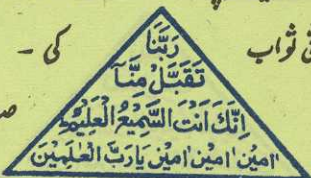 ثواب
کی ۔
رَبَّنَا
تَقَبَّلْ مِنَّآ
اِنَّكَ اَنْتَ السَّمِيْعُ الْعَلِيْمُ ط
اٰمِيْن اٰمِيْن اٰمِيْن يَارَبَّ الْعٰلَمِيْنَ